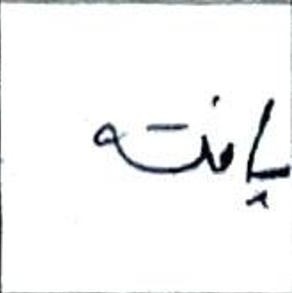 یافته